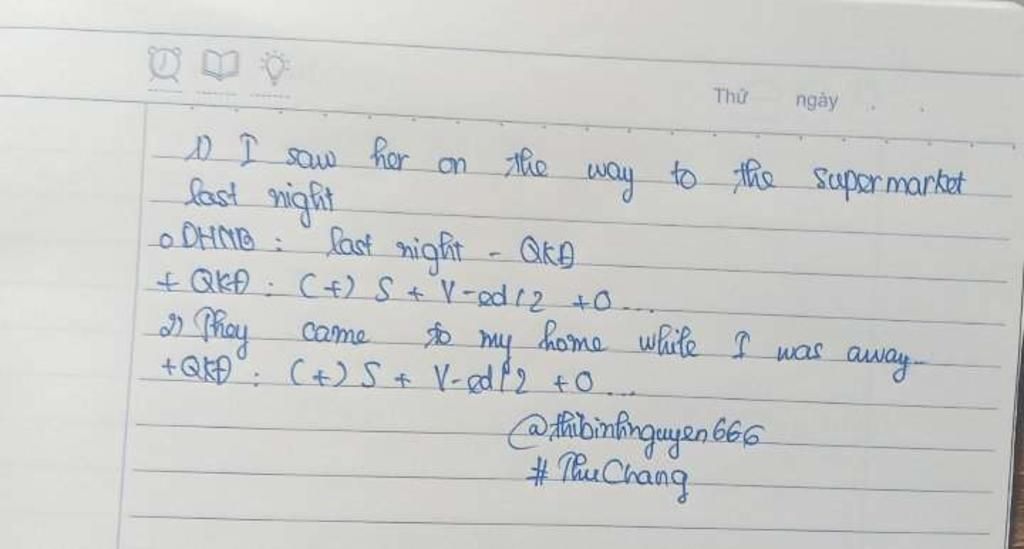 Thứ ngày . .
1) I saw her on the way to the supermarket
last night
o DHNB : last night - QKĐ
+ QKĐ : (+) S + V-ed/2 + O ...
2) They came to my home while I was away
+ QKĐ : (+) S + V-ed/2 + O ...
@thibinhnguyen666
# ThuChang